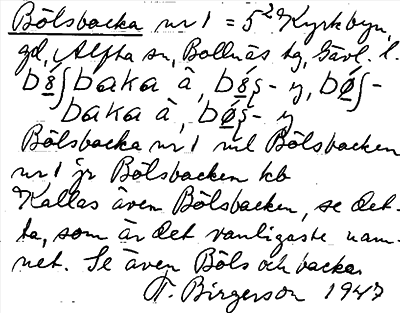 Bölsbacka nr 1 = 5² Kyrkbyn,
gd, Alfta sn, Bollnäs tg, Gävl. l.
b8ʃbaka à, b8ş- y, bøʃ-
baka à, bøş- y
Bölsbacka nr 1 ml Bölsbacken
nr 1 jr Bölsbacken kb
Kallas även Bölsbacken, se det-
ta, som är det vanligaste nam-
net. Se även Böls och backa
T. Birgerson 1947